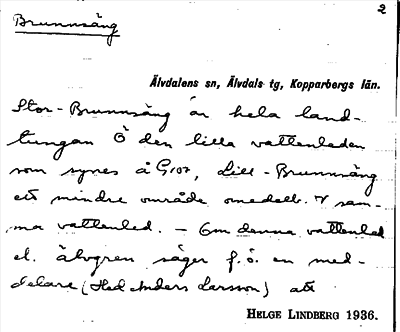 2
Brunnsäng
Älvdalens sn, Älvdals tg, Kopparbergs län.
Stor-Brunnsäng är hela land-
tungan Ö den lilla vattenleden
som synes å G107, Lill-Brunnsäng
ett mindre område omedelb. V sam-
ma vattenled. — Om denna vattenled
el. älvgren säger f.ö. en med-
delare (Hed Anders Larsson) att
HELGE LINDBERG 1936.